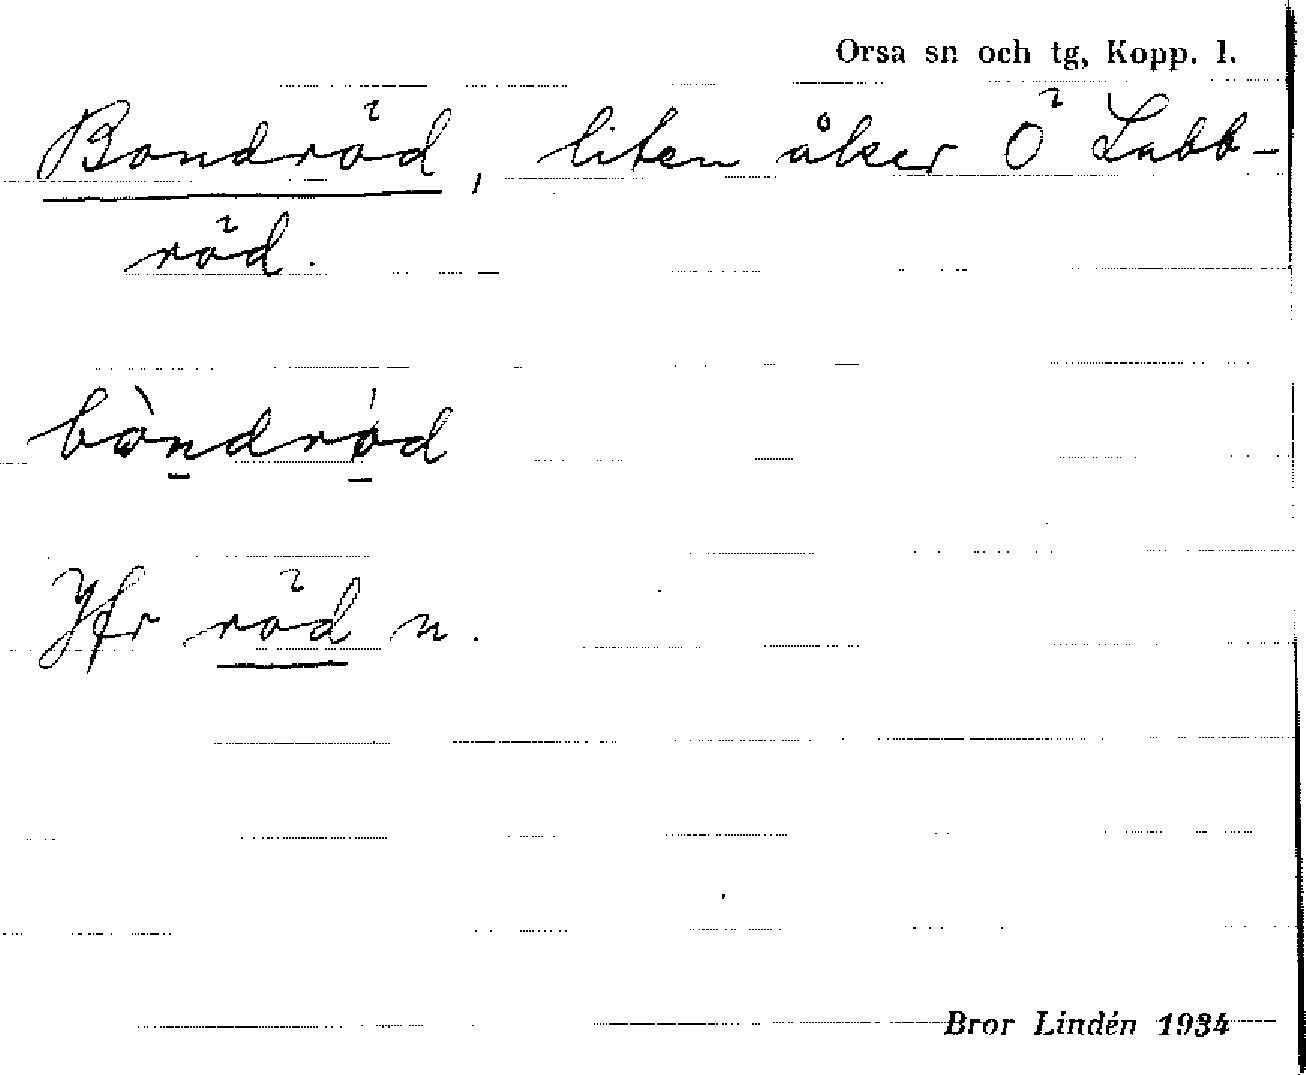 Orsa sn och tg, Kopp. l.
Bondröd, liten åker Ö Labb-
röd.
bòndród
Jfr röd n.
Bror Lindén 1934